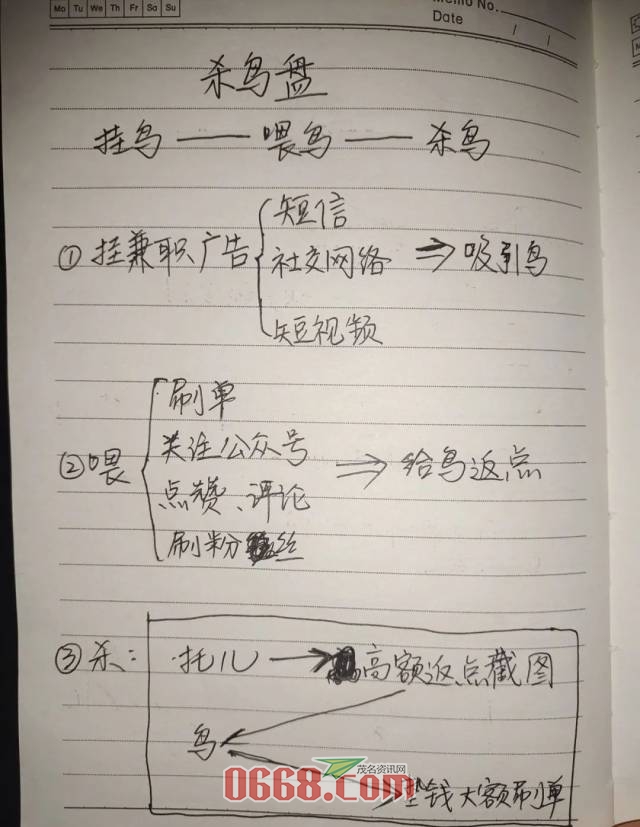 Mo Tu We Th Fr Sa Su
Memo No.
Date / /
杀鸟盘
挂鸟——喂鸟——杀鸟
短信
①挂兼职广告 社交网络 ⇒吸引鸟
短视频
刷单
关注公众号
②喂 ⇒给鸟返点
点赞、评论
刷粉丝
③杀: 托儿→高额返点截图
鸟
茂名资讯网
0668.com
垫钱大额刷单